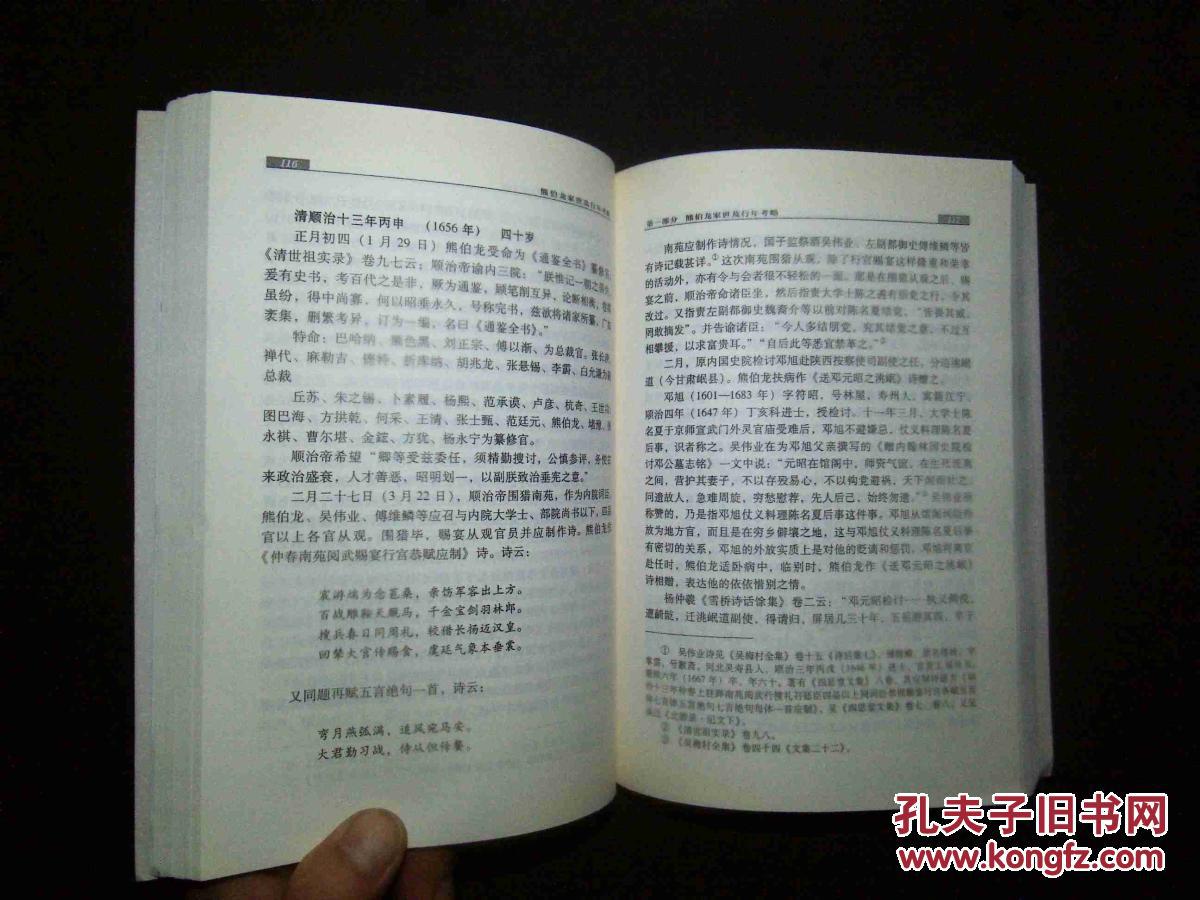 116
熊伯龙家世及行年考略
清顺治十三年丙申 (1656年) 四十岁
正月初四(1月29日)熊伯龙受命为《通鉴全书》纂修官。
《清世祖实录》卷九七云:顺治帝谕内三院:“朕惟记一朝之得失,
爰有史书,考百代之是非,厥为通鉴,顾笔削互异,论断相
虽纷,得中尚寡,何以昭垂永久,号称完书,兹欲将诸家所纂,广
袤集,删繁考异,订为一编,名曰《通鉴全书》。”
特命:巴哈纳、额色黑、刘正宗、傅以渐、为总裁官。张长庚、
禅代、麻勒吉、德特、新库纳、胡兆龙、张悬锡、李霨、白允谦为副
总裁
丘苏、朱之锡、卜素履、杨熙、范承谟、卢彦、杭奇、王世功、
图巴海、方拱乾、何采、王清、张士甄、范廷元、熊伯龙、
永祺、曹尔堪、金鋐、方犹、杨永宁为纂修官。
顺治帝希望“卿等受兹委任,须精勤搜讨,公慎参评,务使古
来政治盛衰,人才善恶,昭明划一,以副朕致治垂宪之意。”
二月二十七日(3月22日),顺治帝围猎南苑,作为内院词臣,
熊伯龙、吴伟业、傅维鳞等应召与内院大学士、部院尚书以下,四品
官以上各官从观。围猎毕,赐宴从观官员并应制作诗。熊伯龙作
《仲春南苑阅武赐宴行宫恭赋应制》诗。诗云:
宸游端为念苞桑,亲饬军容出上方。
百战雕鞍天厩马,千金宝剑羽林郎。
搜兵春日同周礼,较猎长扬迈汉皇。
回辇大官传赐食,虞廷气象本垂裳。
又同题再赋五言绝句一首,诗云:
弯月燕弧满,追风宛马安。
大君勤习战,侍从但传餐。
第一部分 熊伯龙家世及行年考略
117
南苑应制作诗情况,国子监祭酒吴伟业、左副都御史傅维鳞等皆
有诗记载甚详。① 这次南苑围猎从观,除了行宫赐宴这样隆重和荣幸
的活动外,亦有令与会者很不轻松的一面。那是在围猎从观之后、赐
宴之前,顺治帝命诸臣坐,然后指责大学士陈之遴有朋党之行,令其
改过。又指责左副都御史魏裔介等以前对陈名夏专权,“皆畏其威,
罔敢摘发”。并告谕诸臣:“今人多结朋党,究其结党之意,不过互
相攀援,以求富贵耳。”“自后此等悉宜禁革之。”②
二月,原内国史院检讨邓旭赴陕西按察使司副使之任,分巡洮岷
道(今甘肃岷县)。熊伯龙扶病作《送邓元昭之洮岷》诗赠之。
邓旭(1601—1683年)字符昭,号林屋,寿州人,寓籍江宁,
顺治四年(1647年)丁亥科进士,授检讨。十一年三月,大学士陈
名夏于京师宣武门外灵官庙受难后,邓旭不避嫌忌,仗义料理陈名夏
后事,识者称之。吴伟业在为邓旭父亲撰写的《赠内翰林国史院检
讨邓公墓志铭》一文中说:“元昭在馆阁中,师资气谊,在生死
之间,营护其妻子,不以存殁易心,不以钩党避祸,天下闻而壮之。
同遣故人,急难周旋,穷愁慰荐,先人后己,始终勿遗。”③吴伟业所
称赞的,乃是指邓旭仗义料理陈名夏后事这件事。邓旭从馆阁词臣外
放为地方官,而且是在穷乡僻壤之地,这与邓旭仗义料理陈名夏后事
有密切的关系,邓旭的外放实质上是对他的贬谪和惩罚。邓旭将离京
赴任时,熊伯龙适卧病中,临别时,熊伯龙作《送邓元昭之洮岷》
诗相赠,表达他的依依惜别之情。
杨仲羲《雪桥诗话馀集》卷二云:“邓元昭检讨
遭齮龁,迁洮岷道副使,得请归,屏居几三十年,五岳游其四,
① 吴伟业诗见《吴梅村全集》卷十五
② 《清世祖实录》卷九八。
③ 《吴梅村全集》卷四十四《文集二十二》。
孔夫子旧书网
www.kongfz.com